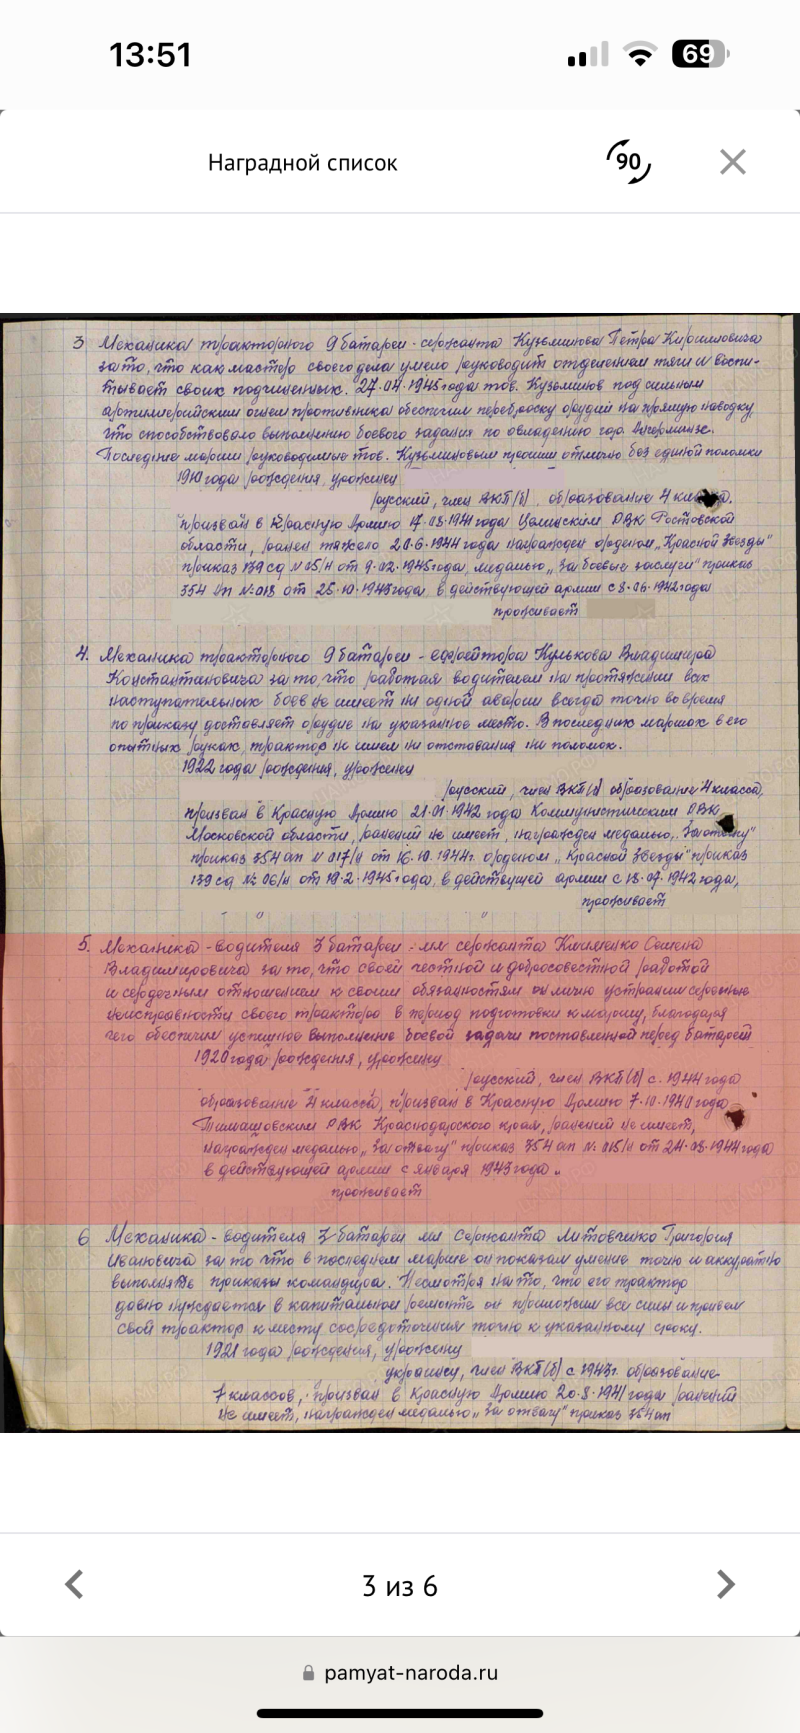 13:51
69
Наградной список
90
3 Механика тракторного 9 батареи - сержанта Кузьминова Петра Кирилловича
за то, что как мастер своего дела умело руководит отделением тяги и воспи-
тывает своих подчиненных. 27.04.1945 года тов. Кузьминов под сильным
артиллерийским огнем противника обеспечил переброску орудий на прямую наводку,
что способствовало выполнению боевого задания по овладению гор.
Последние марши руководимые тов. Кузьминовым прошли отлично без единой поломки
1910 года рождения, уроженец
русский, член ВКП(б), образование 4 класса.
призван в Красную Армию 17.08.1941 года Цалинским РВК Ростовской
области, ранен тяжело 20.6.1944 года награжден орденом „Красной Звезды"
приказ 139 сд N 05/н от 9.02.1945 года, медалью „За боевые заслуги" приказ
354 ап N: 013 от 25.10.1943 года, в действующей армии с 8.06.1942 года
проживает
4. Механика тракторного 9 батареи - ефрейтора Кулькова Владимира
Константиновича за то, что работая водителем на протяжении всех
наступательных боев не имеет ни одной аварии всегда точно во время
по приказу доставляет орудие на указанное место. В последних маршах в его
опытных руках, трактор не имел ни отставания ни поломок.
1922 года рождения, уроженец
русский, член ВКП(б) образование 4 класса,
призван в Красную Армию 21.01.1942 года Коммунистическим РВК
Московской области, ранений не имеет, награжден медалью „За отвагу"
приказ 354 ап N 017/н от 16.10.1944г. орденом „Красной Звезды" приказ
139 сд N: 06/н от 19.2.1945 года, в действующей армии с 18.07.1942 года,
проживает
5. Механика - водителя 3 батареи - мл сержанта Клименко Семена
Владимировича за то, что своей честной и добросовестной работой
и сердечным отношением к своим обязанностям он лично устранил серьезные
неисправности своего трактора в период подготовки к маршу, благодаря
чего обеспечил успешное выполнение боевой задачи поставленной перед батареей
1920 года рождения, уроженец
русский, член ВКП(б) с 1944 года
образование 4 класса, призван в Красную Армию 7.10.1940 года
Тимашовским РВК Краснодарского края, ранений не имеет,
награжден медалью „За отвагу" приказ 354 ап N: 015/н от 24.08.1944 года
в действующей армии с января 1943 года.
проживает
6 Механика - водителя 3 батареи мл сержанта Литовченко Григория
Ивановича за то что в последнем марше он показал умение точно и аккуратно
выполнять приказы командира. Несмотря на то, что его трактор
давно нуждается в капитальном ремонте он приложил все силы и привел
свой трактор к месту сосредоточения точно к указанному сроку.
1921 года рождения, уроженец
украинец, член ВКП(б) с 1943г. образование
7 классов, призван в Красную Армию 20.8.1941 года ранений
не имеет, награжден медалью „За отвагу" приказ 354 ап
3 из 6
pamyat-naroda.ru